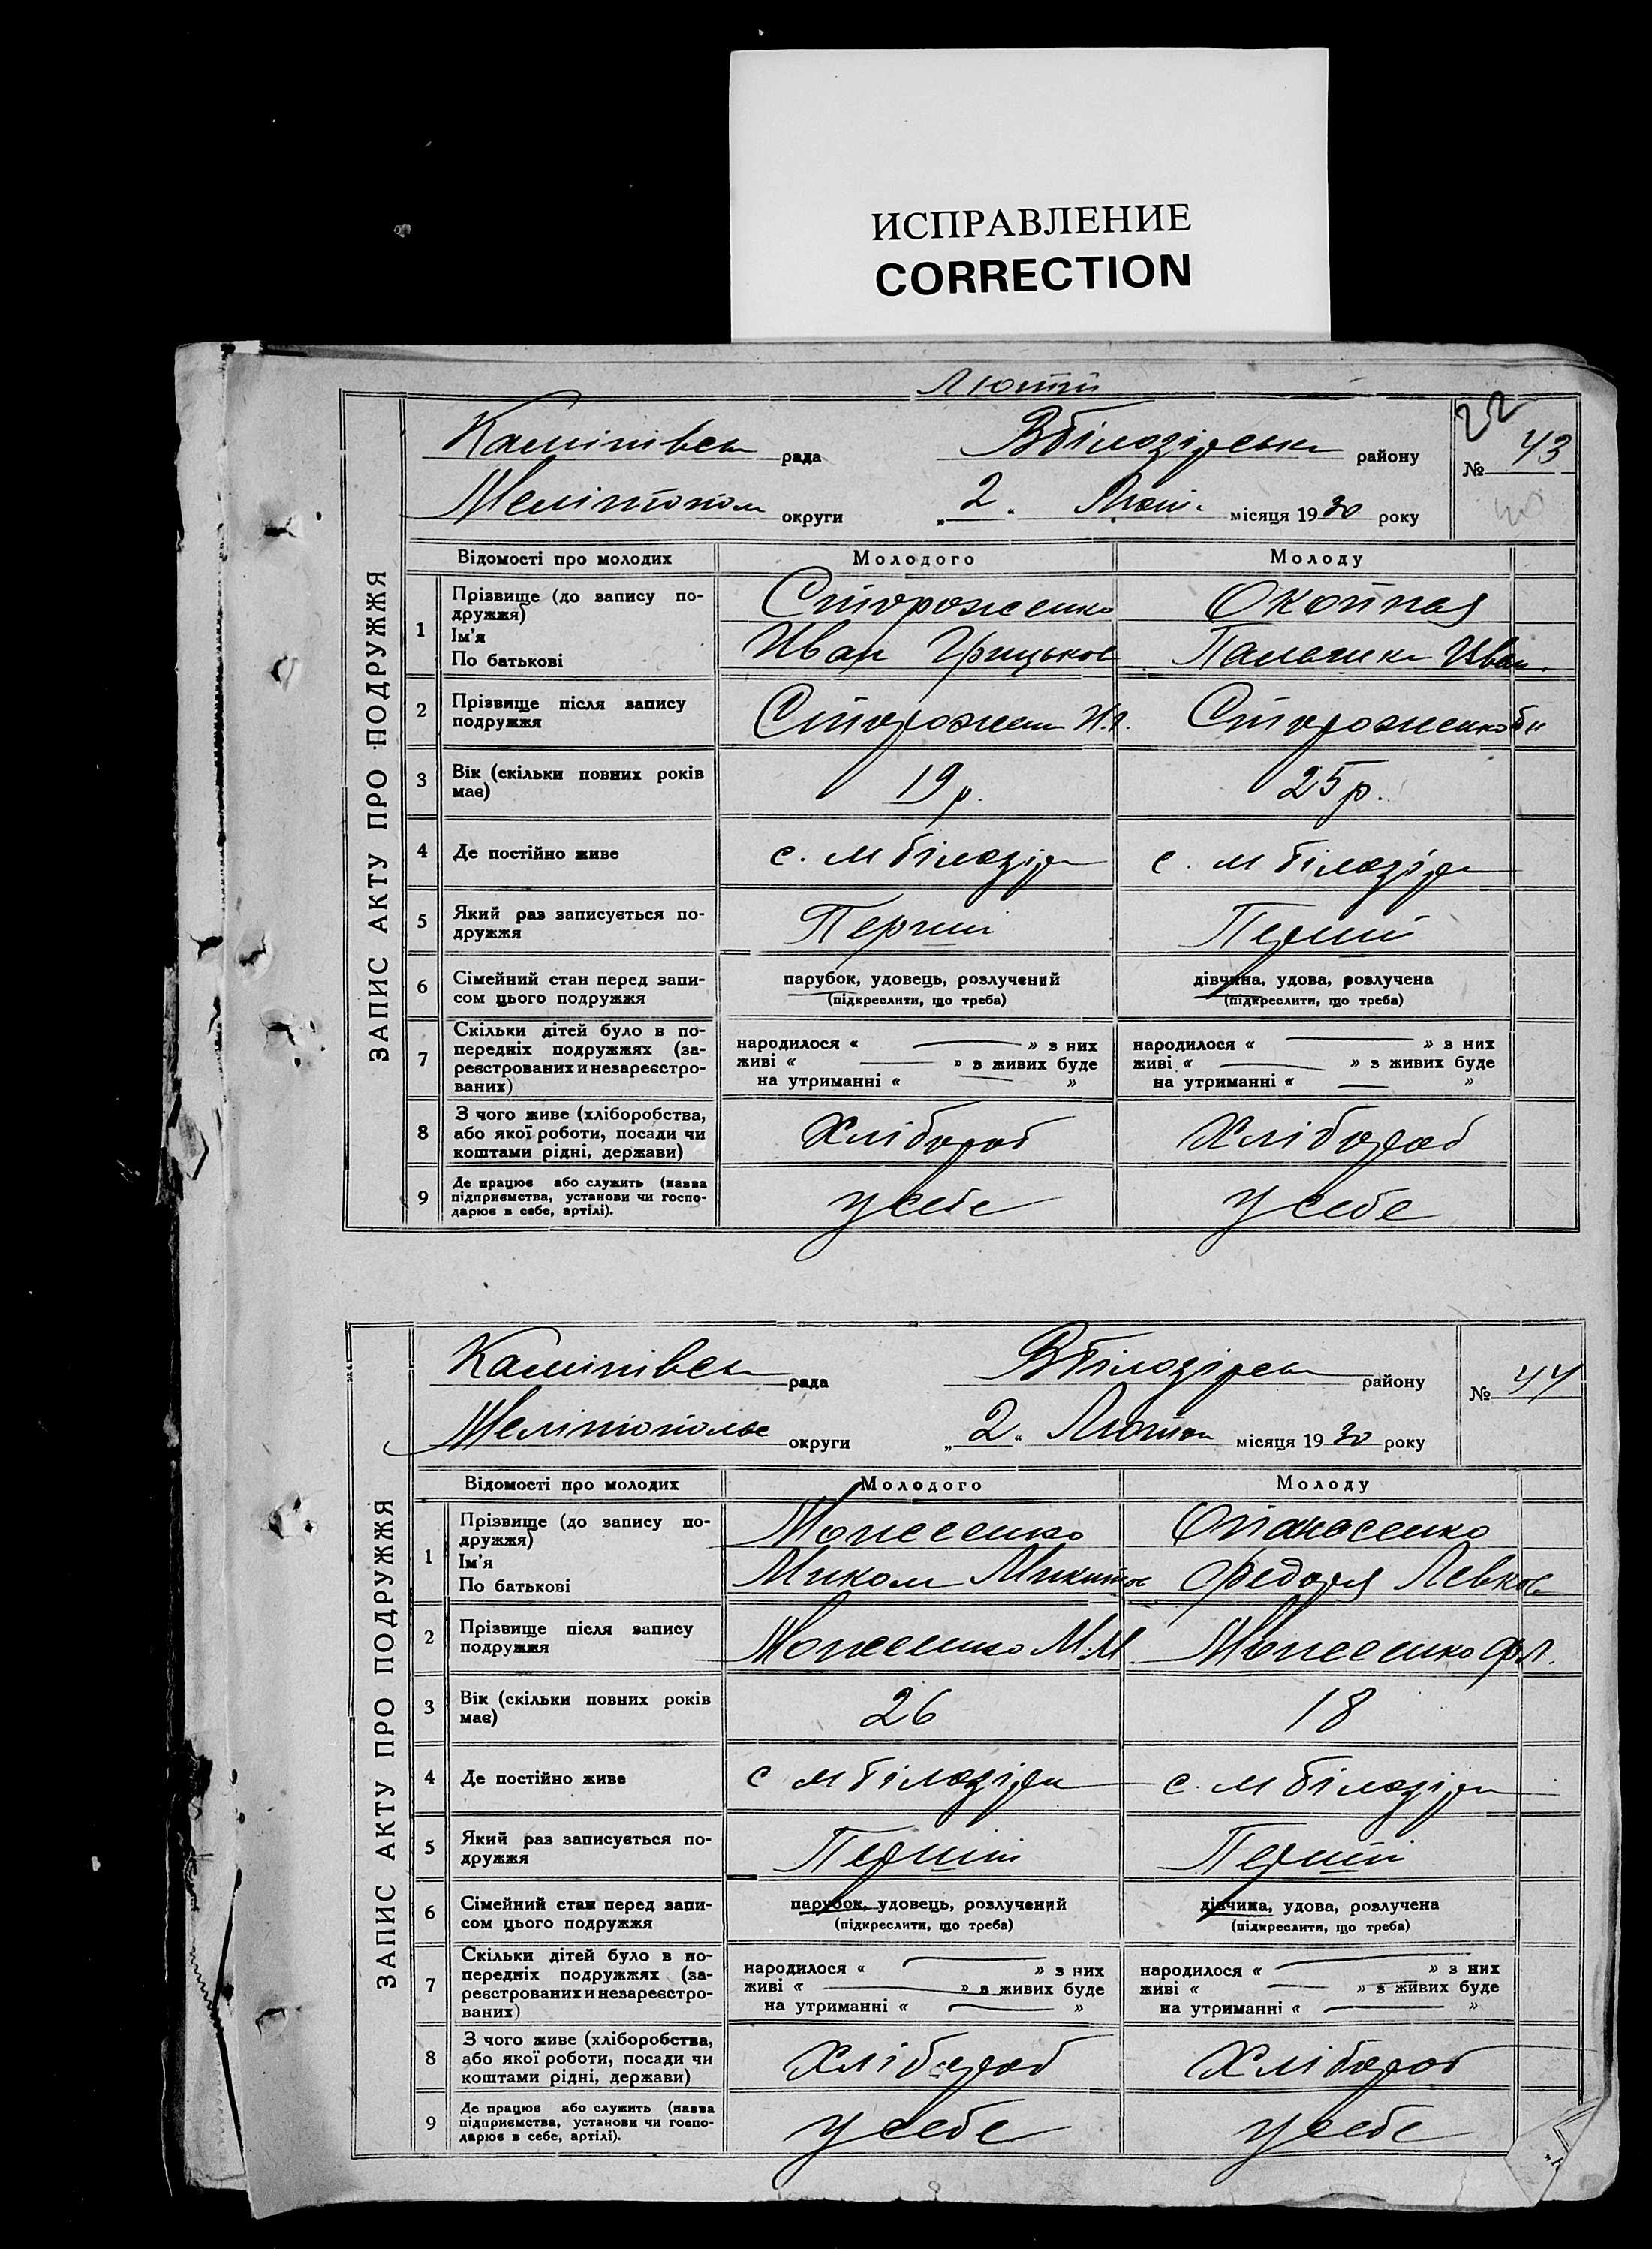 ИСПРАВЛЕНИЕ
CORRECTION
Лютий
22
рада Вбілозірськ району № 43
Мелітопол округи „ 2 “ місяця 1930 року
ЗАПИС АКТУ ПРО ПОДРУЖЖЯ
Відомості про молодих Молодого Молоду
1 Прізвище (до запису по-
дружжя)
Ім'я
По батькові
Стороженко
Иван Грицьков Иван.
2 Прізвище після запису
подружжя
3 Вік (скільки повних років
має)
19 р. 25 р.
4 Де постійно живе с. м білозірк с. м білозірк
5 Який раз записується по-
дружжя
Перший Перший
6 Сімейний стан перед запи-
сом цього подружжя
парубок, удовець, розлучений
(підкреслити, що треба)
дівчина, удова, розлучена
(підкреслити, що треба)
7 Скільки дітей було в по-
передніх подружжях (за-
реєстрованих и незареєстро-
ваних)
народилося « » з них
живі « » з живих буде
на утриманні « »
народилося « » з них
живі « » з живих буде
на утриманні « »
8 З чого живе (хліборобства,
або якої роботи, посади чи
коштами рідні, держави)
Хлібороб Хлібороб
9 Де працює або служить (назва
підприємства, установи чи госпо-
дарює в себе, артілі).
у себе у себе
рада Вбілозірськ району № 44
округи „ 2 “ місяця 1930 року
ЗАПИС АКТУ ПРО ПОДРУЖЖЯ
Відомості про молодих Молодого Молоду
1 Прізвище (до запису по-
дружжя)
Ім'я
По батькові
Моисеенко
Микол Микитов Федора Левков
2 Прізвище після запису
подружжя
Моисеенко М.М Моисеенко Ф Л.
3 Вік (скільки повних років
має)
26 18
4 Де постійно живе с м білозірк с. м білозірк
5 Який раз записується по-
дружжя
Перший Перший
6 Сімейний стан перед запи-
сом цього подружжя
парубок, удовець, розлучений
(підкреслити, що треба)
дівчина, удова, розлучена
(підкреслити, що треба)
7 Скільки дітей було в по-
передніх подружжях (за-
реєстрованих и незареєстро-
ваних)
народилося « » з них
живі « » з живих буде
на утриманні « »
народилося « » з них
живі « » з живих буде
на утриманні « »
8 З чого живе (хліборобства,
або якої роботи, посади чи
коштами рідні, держави)
Хлібороб Хлібороб
9 Де працює або служить (назва
підприємства, установи чи госпо-
дарює в себе, артілі).
у себе у себе